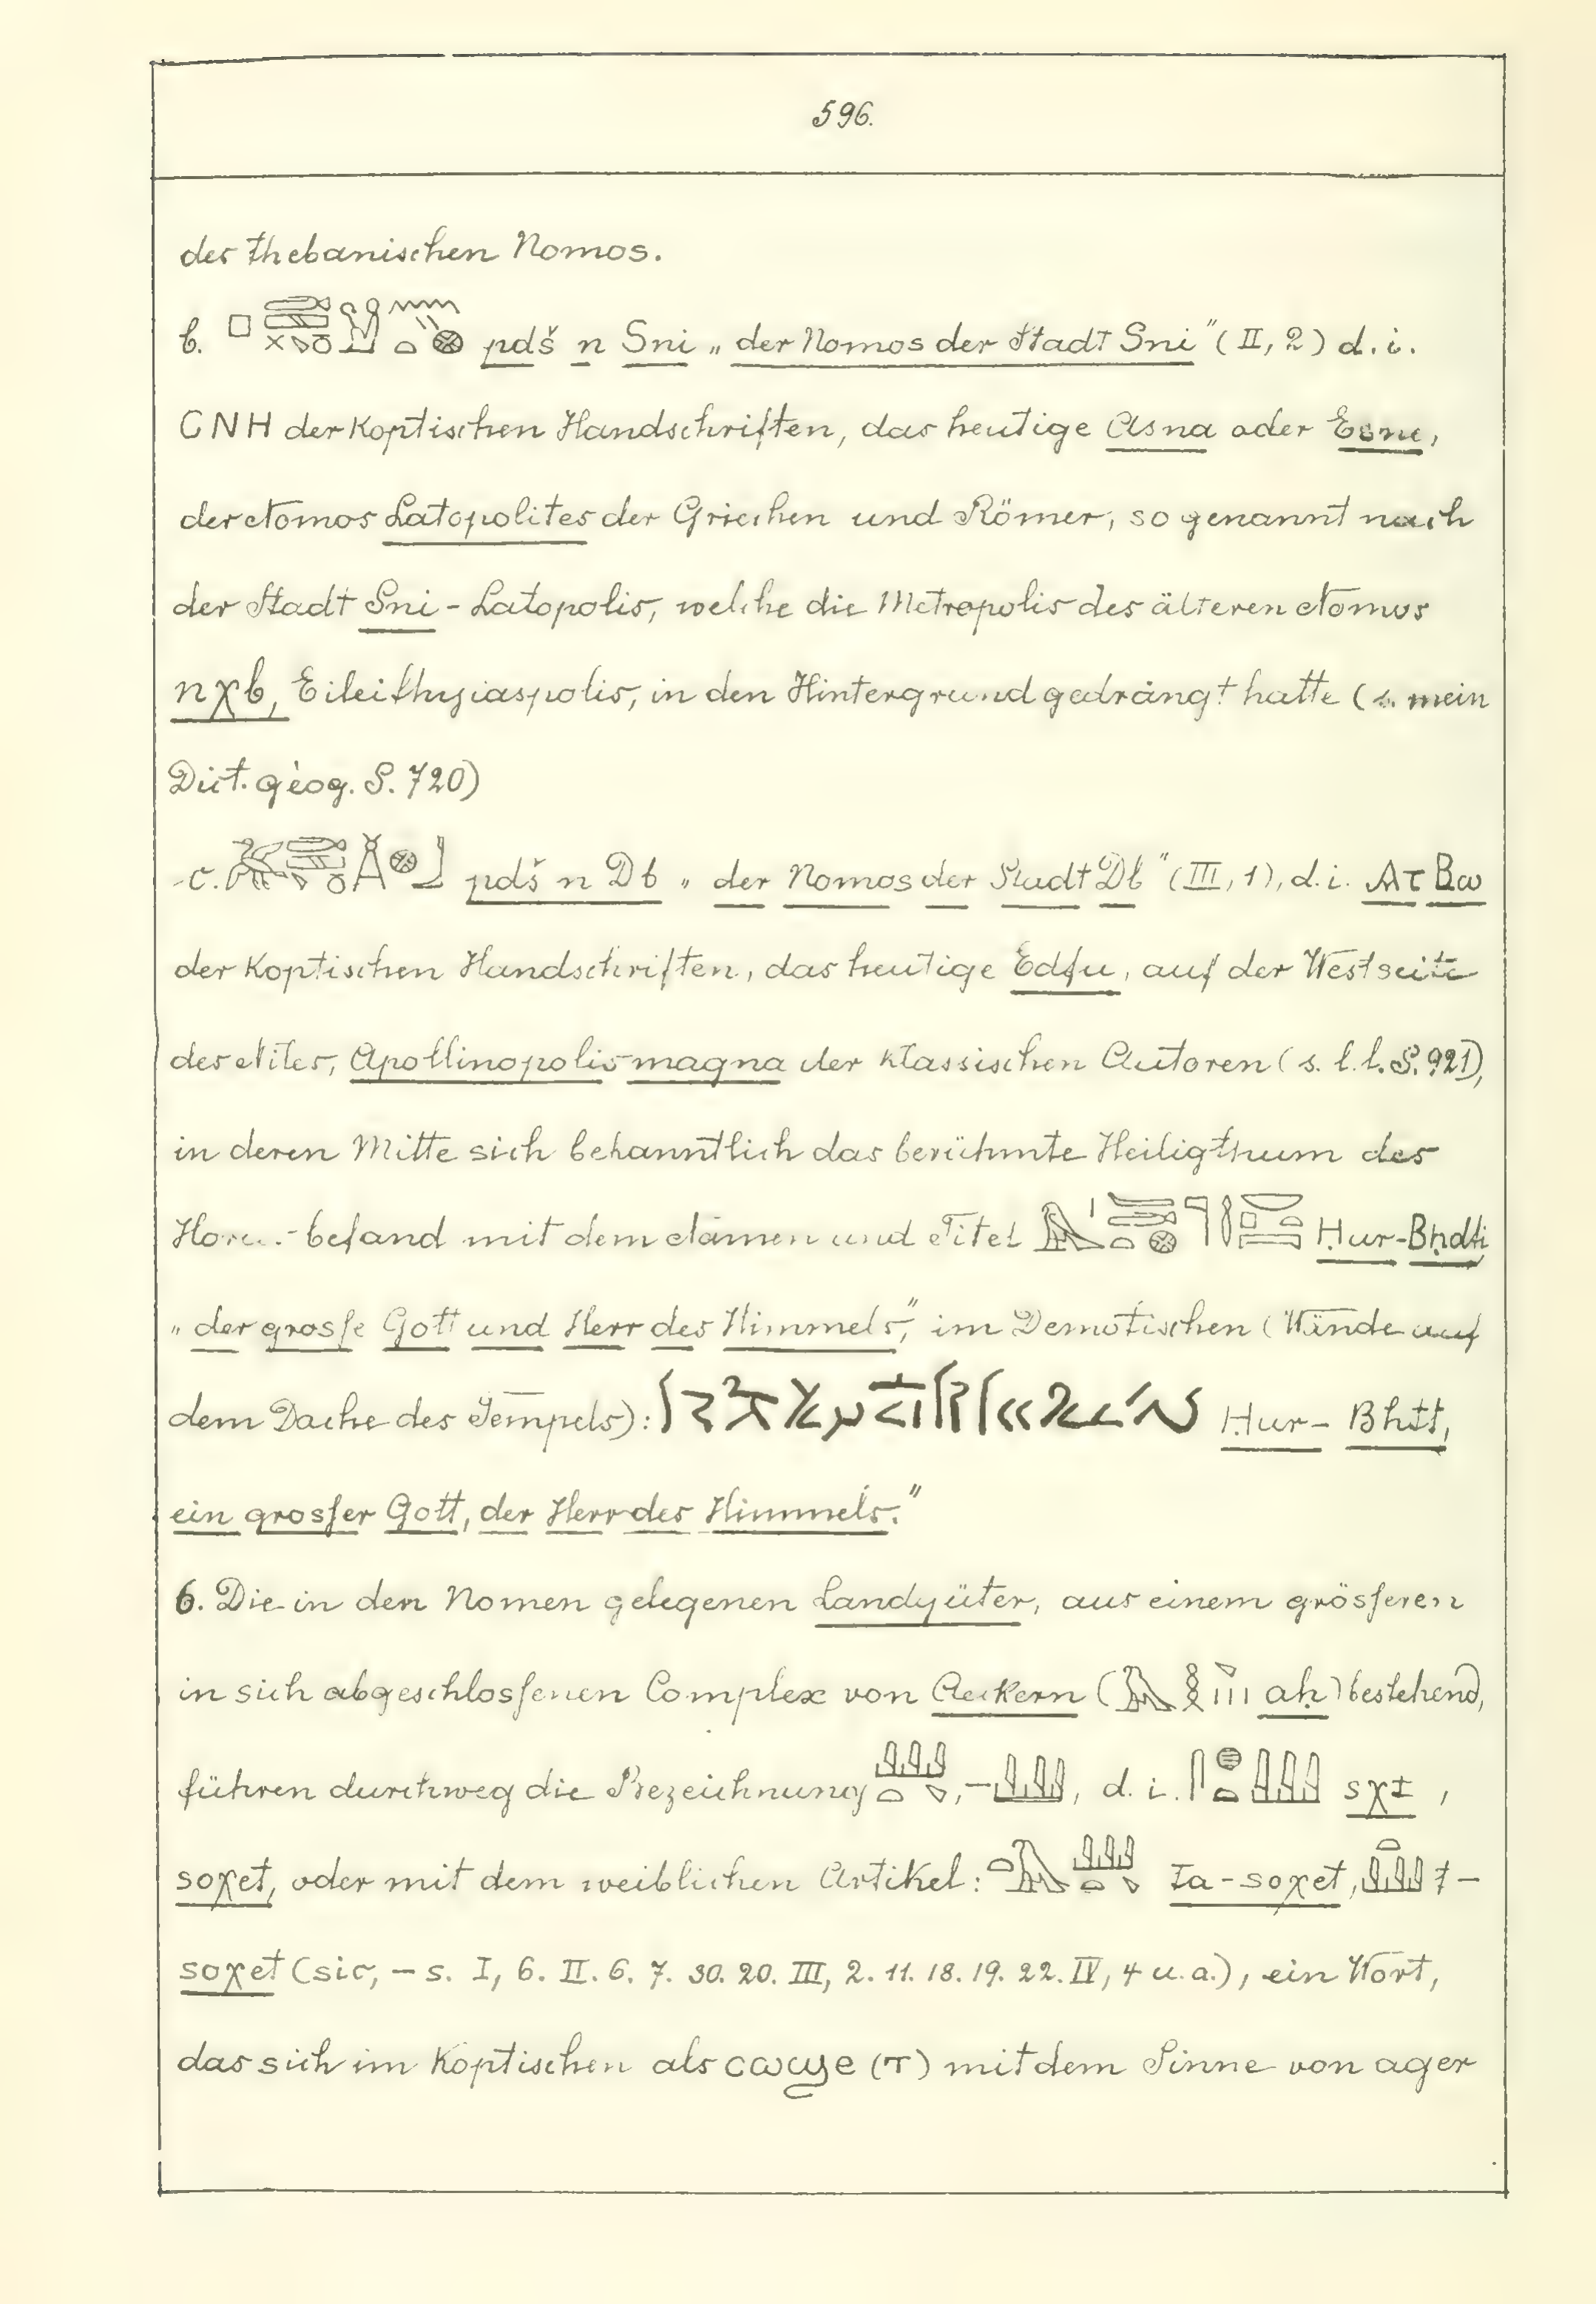 596.
der thebanischen Nomos.
b. pdš n Sni „der Nomos der Stadt Sni" (II, 2) d. i.
CNH der Koptischen Handschriften, das heutige Asna oder Esne,
der Nomos Latopolites der Griechen und Römer, so genannt nach
der Stadt Sni - Latopolis, welche die Metropolis des älteren Nomos
nχb, Eileithyiaspolis, in den Hintergrund gedrängt hatte (s. mein
Dict. géog. S. 720)
c. pdš n Db „der Nomos der Stadt Db" (III, 1), d. i. ⲀⲦⲂⲱ
der Koptischen Handschriften, das heutige Edfu, auf der Westseite
des Niles, Apollinopolis magna der klassischen Autoren (s. l. l. S. 921),
in deren Mitte sich bekanntlich das berühmte Heiligthum des
Horus befand mit dem Namen und Titel Ḥur-Bḥdti
„der grosse Gott und Herr des Himmels", im Demotischen (Wände auf
dem Dache des Tempels): Ḥur- Bḥtt,
ein grosser Gott, der Herr des Himmels."
6. Die in den Nomen gelegenen Landgüter, aus einem grösseren
in sich abgeschlossenen Complex von Aeckern ( aḥ) bestehend,
führen durchweg die Bezeichnung , – , d. i. sχt ,
soχet, oder mit dem weiblichen Artikel: ta-soχet, t-
soχet (sic, – s. I, 6. II. 6. 7. 30. 20. III, 2. 11. 18. 19. 22. IV, 4 u. a.), ein Wort,
das sich im Koptischen als ⲥⲱϣⲉ (ⲧ) mit dem Sinne von ager